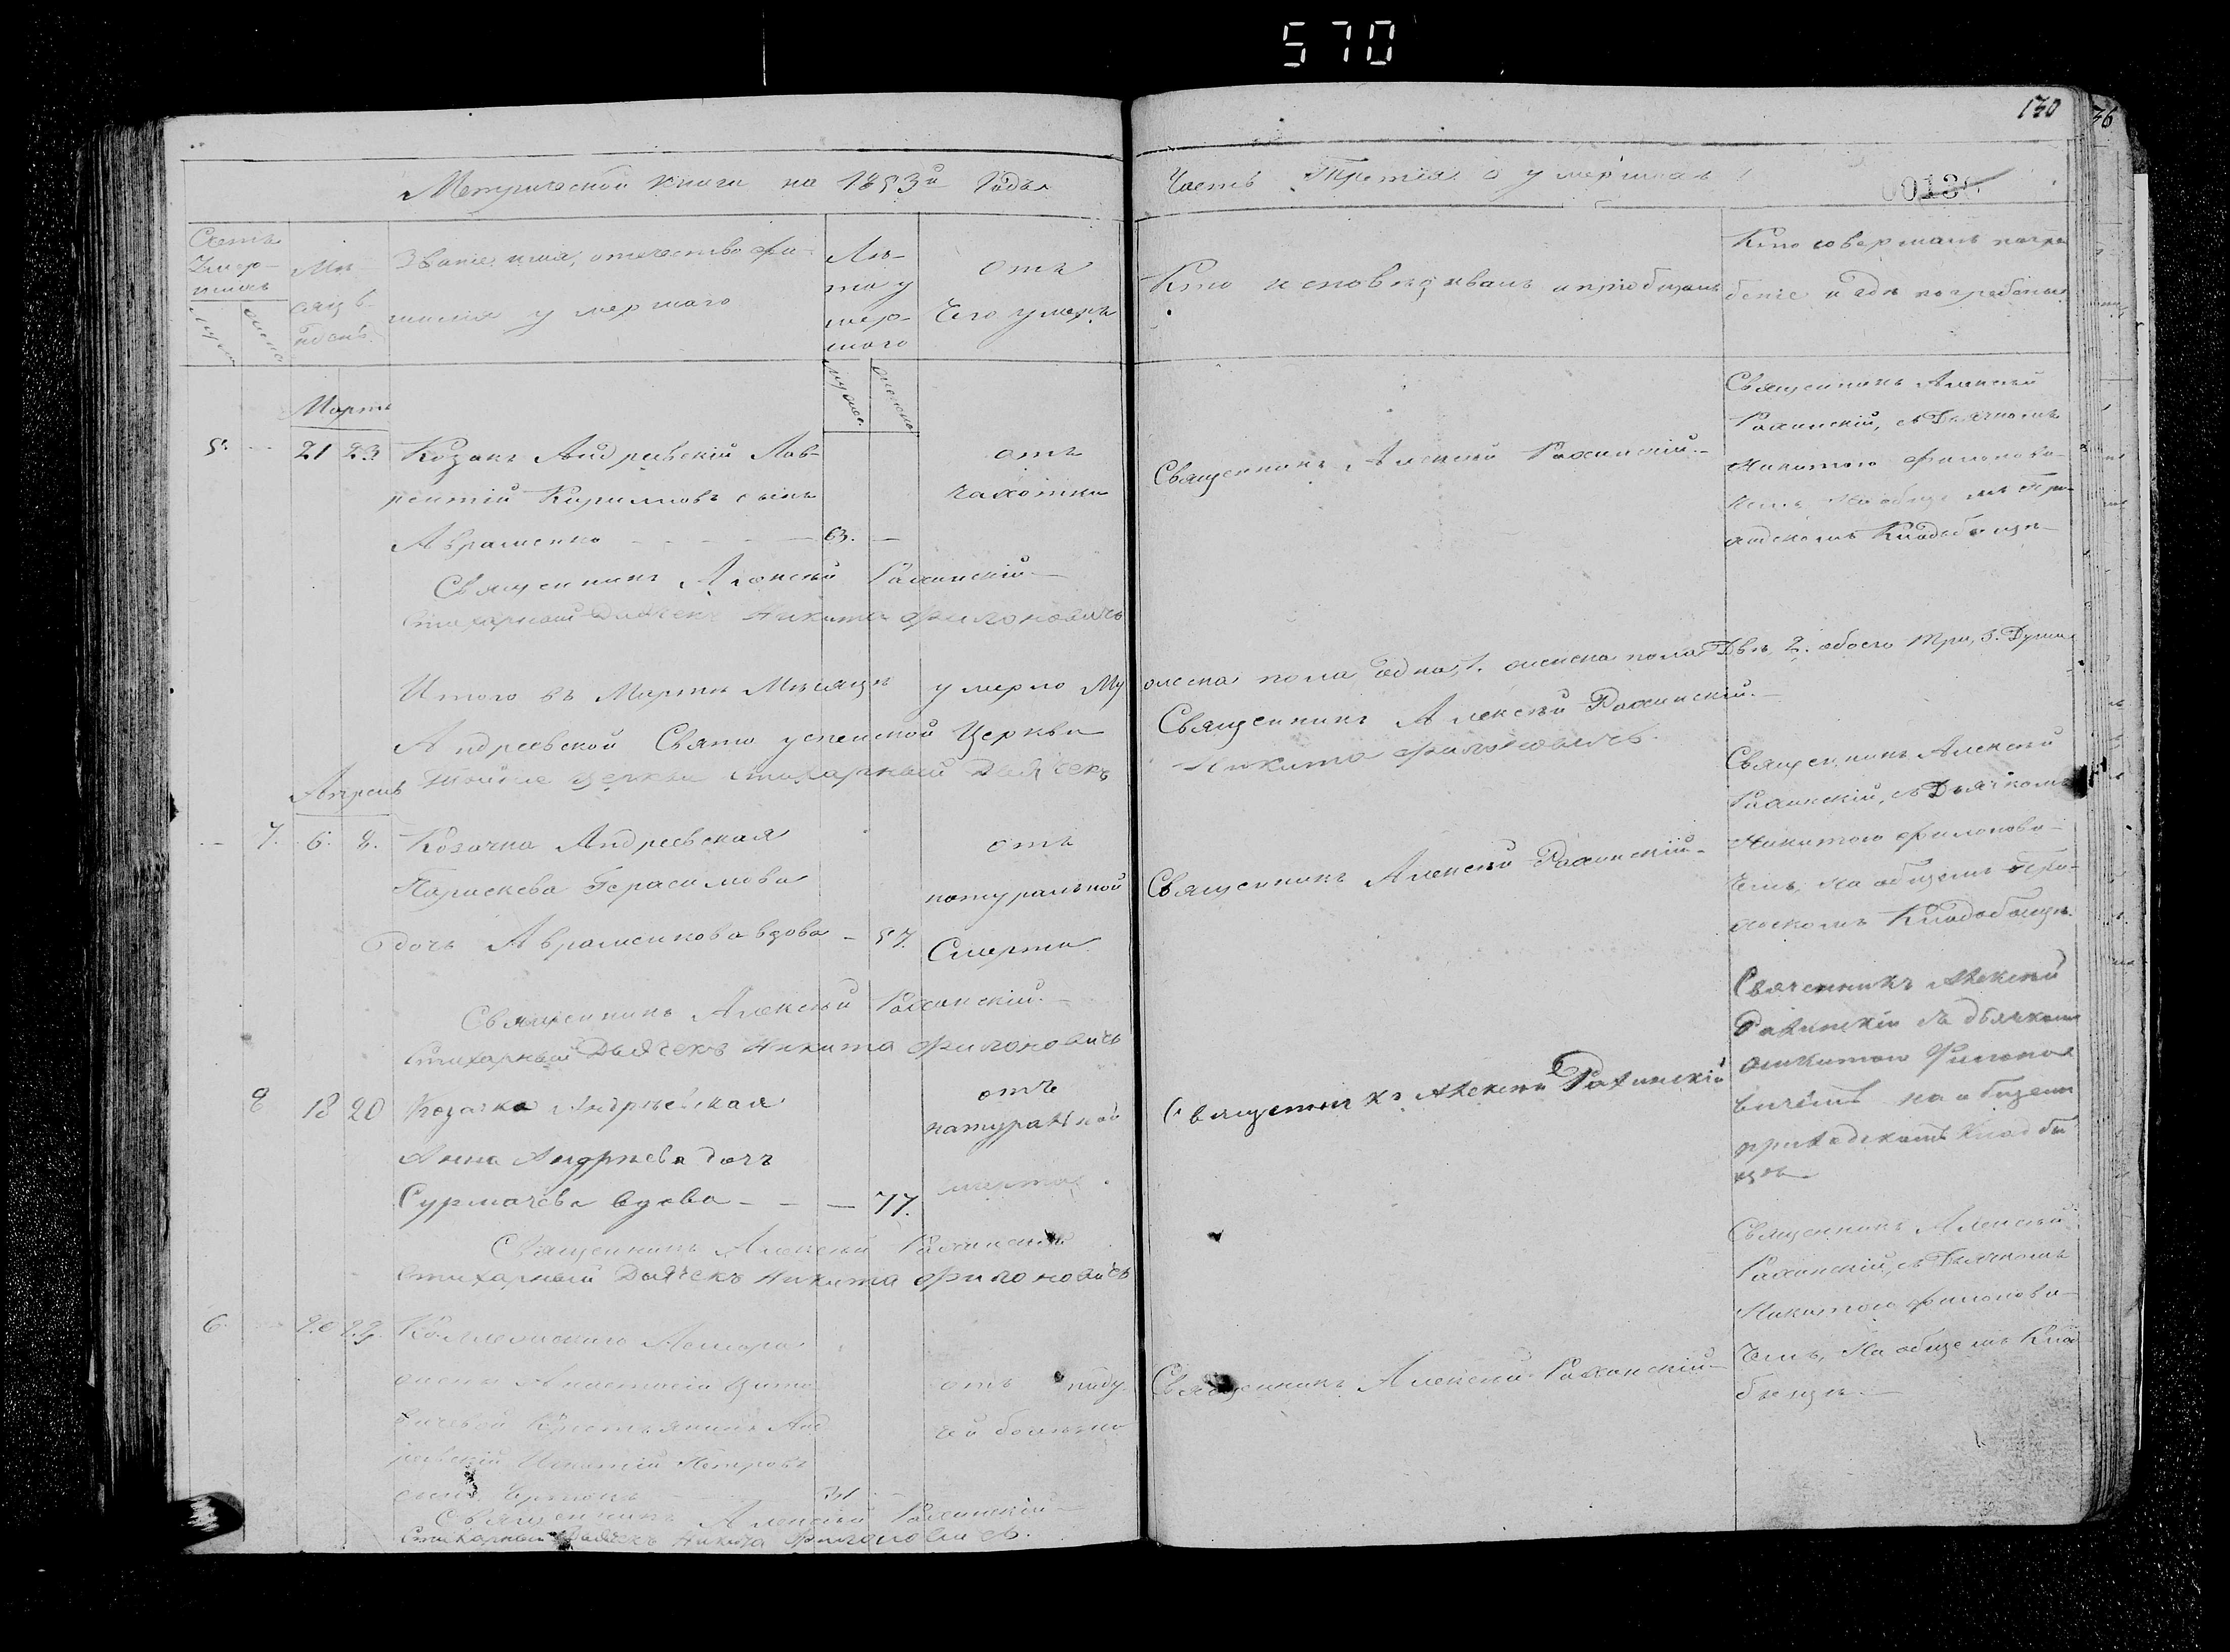 570
130
36
Метрической книги на 1853й Годъ
Часть Третія о умершихъ
Счетъ
Умер-
шихъ
муж
женс
Мѣ-
сяцъ
и день
Званіе имя, отчество фа-
милія умершаго
Лѣ-
та у
мер-
шаго
мужес.
женска
отъ
Чего умеръ
Кто исповѣдывалъ и пріобщалъ
Кто совершалъ погре
беніе и гдѣ погребены
Мартъ
5. 21 23 Козакъ Андреевскій Лав-
рентій Кирилловъ сынъ
Авраменко 63.
отъ
чахотки
Священникъ Алексѣй Рахинскій
Священникъ Алексѣй
Рахинскій, съ Дьячкомъ
Никитою Филонови-
чемъ, на общемъ при-
ходскомъ Кладбищѣ
Священникъ Алексѣй Рахинскій
Стихарный Дьячекъ Никита Филоновичъ
Итого въ Мартѣ Мѣсяцѣ умерло Му жеска пола одна, 1. женска пола Двѣ 2. обоего три, 3. Души
Андреевской Свято успенской Церкви Священникъ Алексѣй Рахинскій
Тойже церкви стихарный Дьячекъ Никита Филоновичъ.
Апрель
7. 6. 8. Козачка Андреевская
Параскева Герасимова
дочь Авраменкова вдова 57.
отъ
натуральной
Смерти
Священникъ Алексѣй Рахинскій
Священникъ Алексѣй
Рахинскій, съ Дьячкомъ
Никитою Филонови-
чемъ, на общемъ при-
ходскомъ Кладбищѣ.
Священникъ Алексѣй Рахинскій
Стихарный Дьячекъ Никита Филоновичъ
8 18 20 Козачка Андрѣевская
Анна Андрѣева дочъ
Сурмачева вдова 77.
отъ
натуральной
смерти
Священникъ Алексѣй Рахинскій
Священникъ Алексѣй
Рахинскій съ дьячкомъ
Никитою Филоно
вичемъ на общемъ
приходскомъ кладби
щѣ
Священникъ Алексѣй Рахинскій
Стихарный Дьячекъ Никита Филоновичъ
6. 20 22.
жены Анастасіи
Крестьянинъ Анд
реевскій Игнатій Петровъ
сынъ 31
отъ паду
чей болѣзни
Священникъ Алексѣй Рахинскій
Священникъ Алексѣй
Рахинскій, съ Дьячкомъ
Никитою Филонови-
чемъ, на общемъ Клад
бищѣ
Священникъ Алексѣй Рахинскій
Стихарный Дьячекъ Никита Филоновичъ.